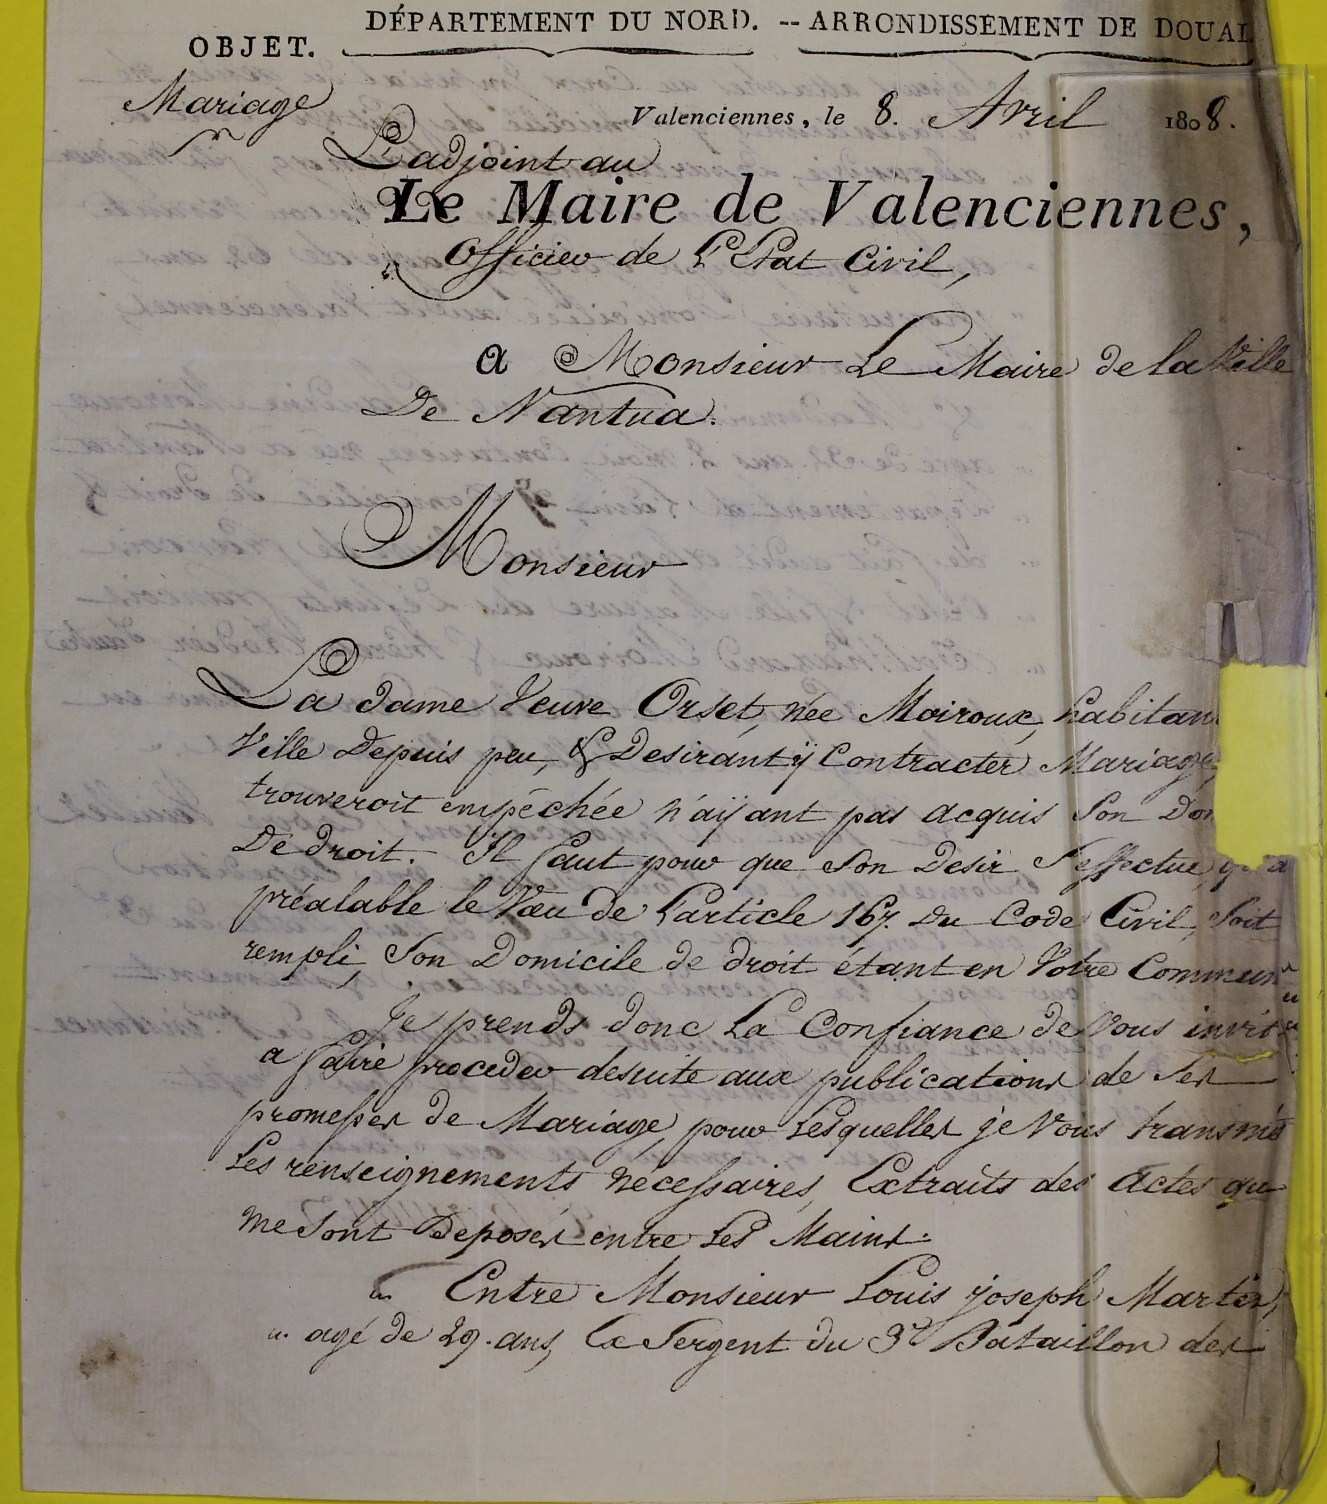 DÉPARTEMENT DU NORD. -- ARRONDISSEMENT DE DOUAI
OBJET.
Mariage
Valenciennes, le 8. Avril 1808.
L'adjoint au
Le Maire de Valenciennes,
Officier de L'Etat Civil,
a Monsieur Le Maire de la Ville
De Nantua.
Monsieur
La dame Veuve Orset, née Moiroux, habitan
Ville Depuis peu, & Desirant ÿ Contracter Mariage,
trouveroit empêchée n'aÿant pas acquis Son Do
De droit. Il faut pour que Son Desir S'effectue,
préalable le Vœu de L'article 167. Du Code Civil, soit
rempli, Son Domicile de droit étant en Votre Commun
Je prends donc La Confiance de Vous invit
a faire proceder desuite aux publications de Ses
promesses de Mariage, pour Lesquelles je Vous transmés
Les renseignements nécessaires, Extraits des Actes qui
me Sont Deposés entre Les Mains.
" Entre Monsieur Louis joseph Martin,
" agé de 29. ans, Ex Sergent du 3e Bataillon des